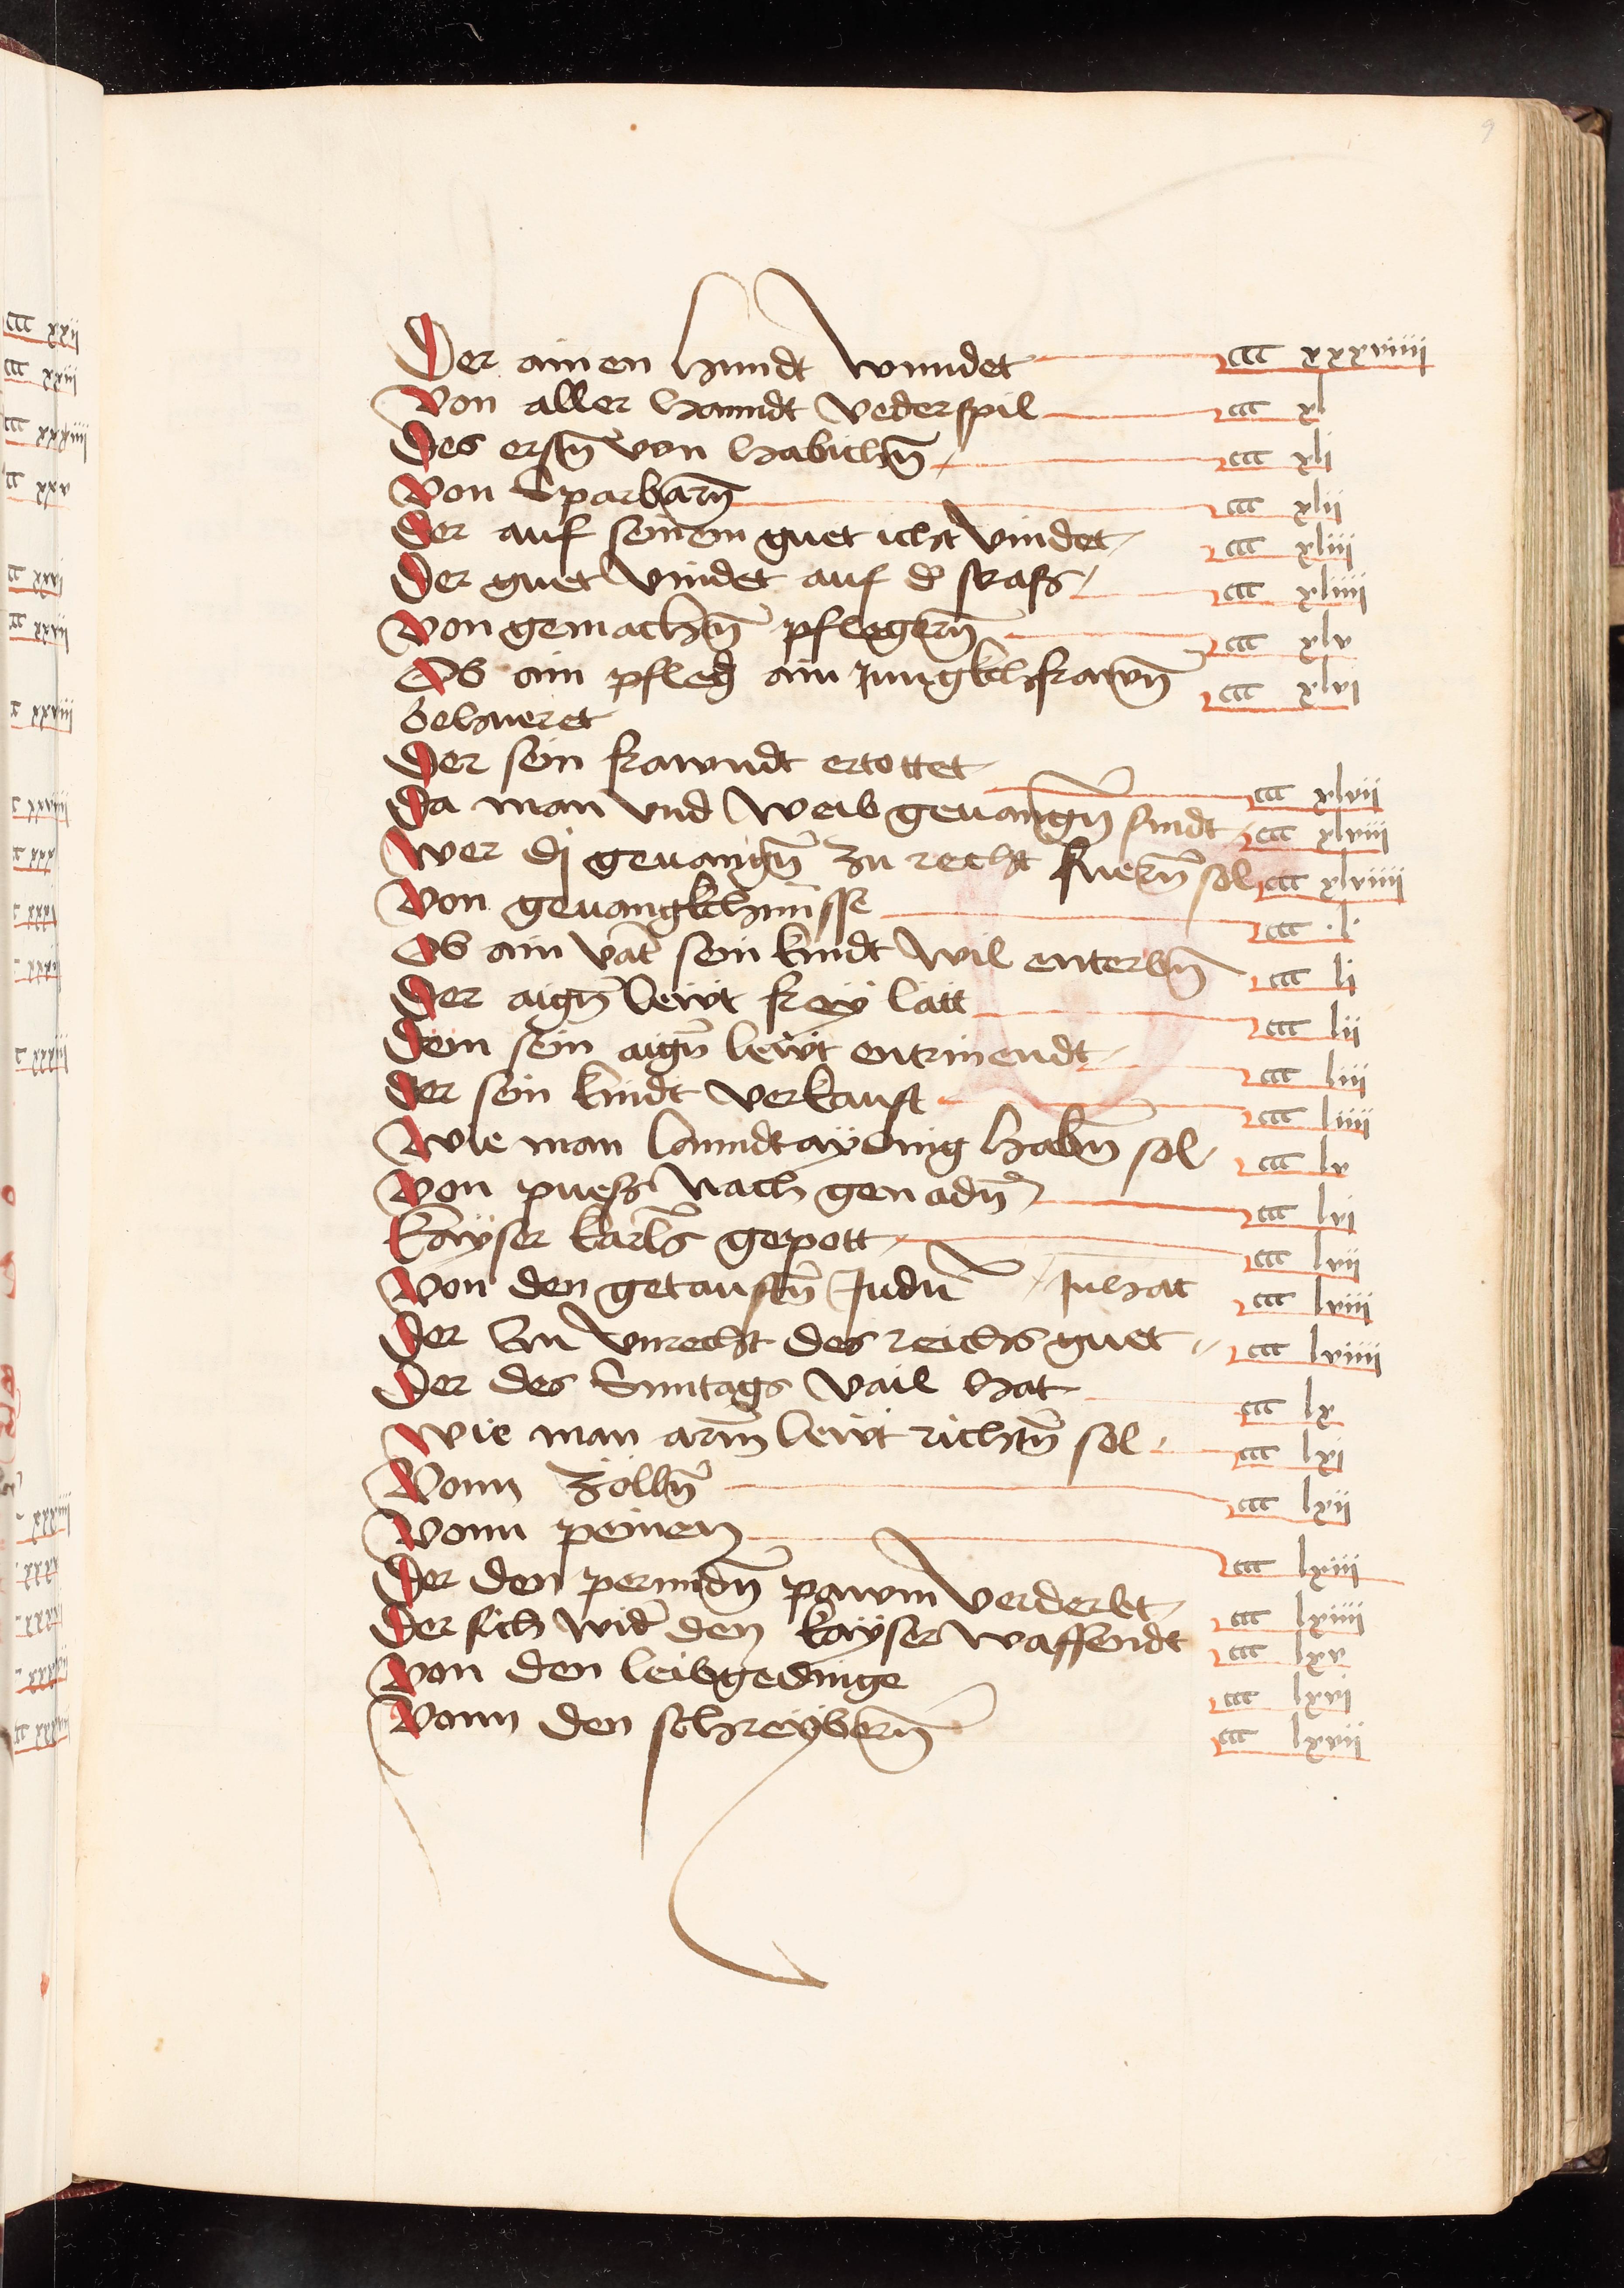 9
Der ainen hundt wundet ccc xxxviiii
Von aller hanndt vederspil ccc xl
Des erstn̄ von habichn̄ ccc xli
Von Sparbarn̄ ccc xlii
Der auf seinem guet icht vindet ccc xliii
Der guet vindet auf d̕ strass ccc xliiii
Von gemachn̄ pflegern̄ ccc xlv
Ob ain pfleg̕ ain Jungkhfrawn̄ ccc xlvi
behueret
Der sein frawndt ertottet ccc xlvii
Da man vnd weib geuangn̄ sindt ccc xlviii
Wer dj geuangn̄ zu recht fuern̄ sol ccc xlviiii
Von geuangkhnusse ccc l
Ob ain vat̕ sein kindt wil enterbn̄ ccc li
Der aign̄ lewt frey latt ccc lii
Dem sein aign̄ lewt entrinendt ccc liii
Der sein kindt verkauft ccc liiii
Wie man lanndtayding habn̄ sol ccc lv
Von puess nach genadn̄ ccc lvi
Kayser karls gepott ccc lvii
Von den getauftn̄ Judn̄ Jnhat ccc lviii
Der Zu vnrecht des reichs guet ccc lviiii
Der des Suntags vail hat ccc lx
Wie man arm̄ lewt richtn̄ sol ccc lxi
Vonn Zolln̄ ccc lxii
Vonn peinen ccc lxiii
Der den perundn̄ pawm verderbt ccc lxiiii
Der sich wid̕ den kayser waffendt ccc lxv
Von den leibgedinge ccc lxvi
Vonn den schreybern̄ ccc lxvii